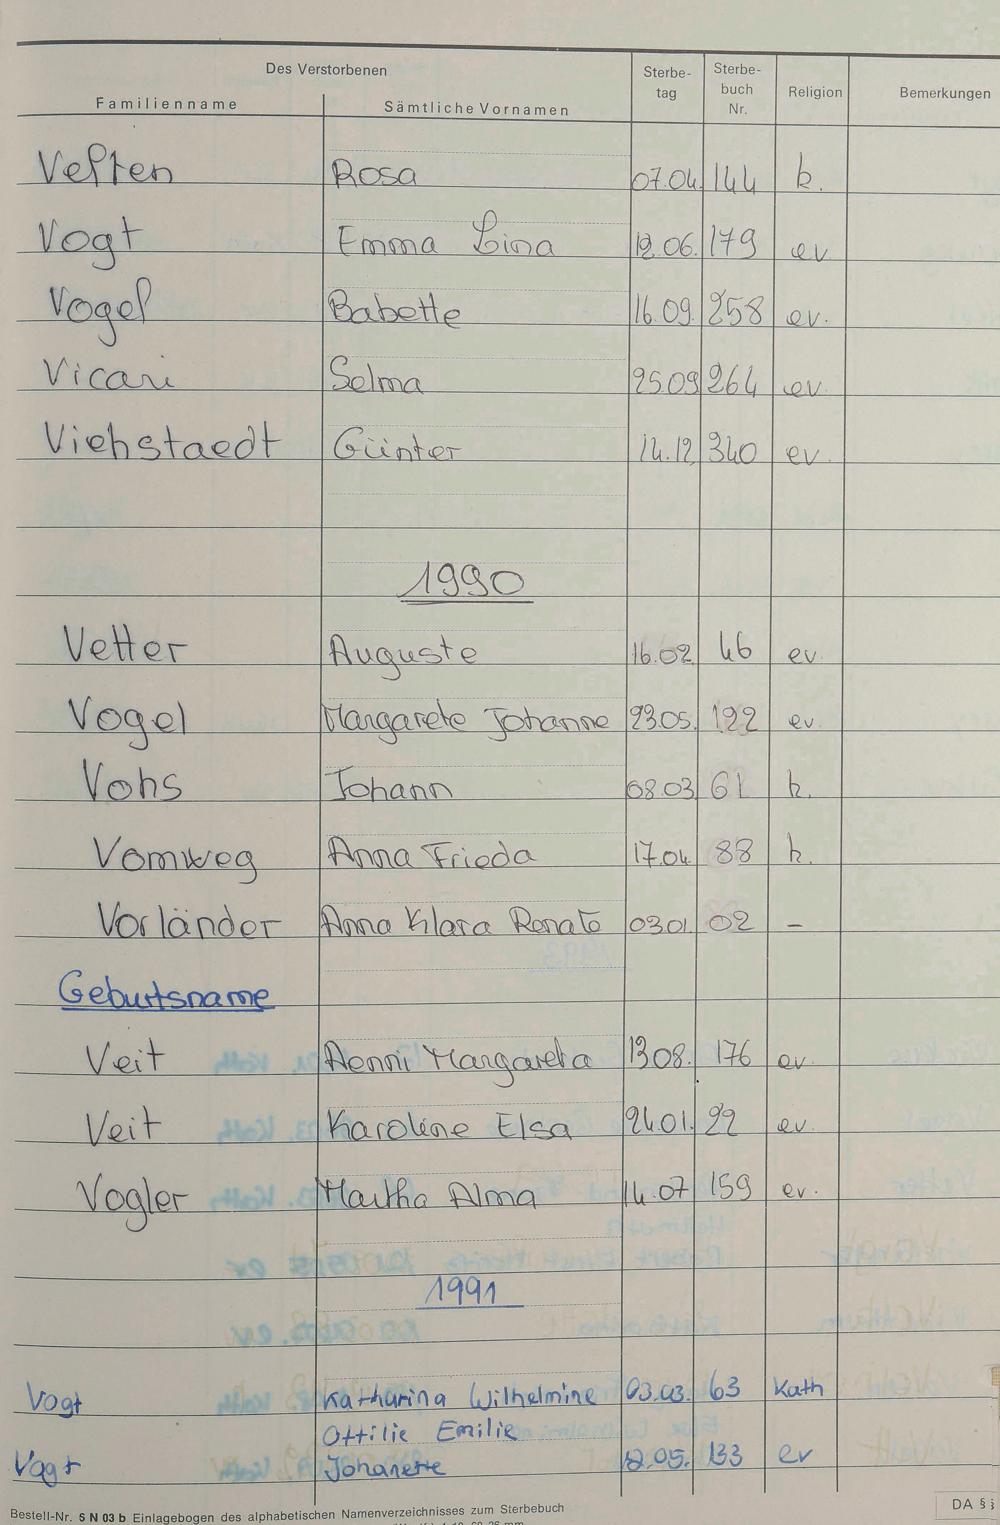 Des Verstorbenen
Familienname Sämtliche Vornamen Sterbe-tag Sterbe-buch Nr. Religion Bemerkungen
Velten Rosa 07.04. 144 k.
Vogt Emma Lina 12.06. 179 ev
Vogel Babette 16.09. 258 ev.
Vicari Selma 25.09 264 ev.
Viehstaedt Günter 14.12 340 ev.
1990
Vetter Auguste 16.02 46 ev.
Vogel Margarete Johanne 23.05. 122 ev.
Vohs Johann 08.03 61 k.
Vomweg Anna Frieda 17.04 88 k.
Vorländer Anna Klara Renate 03.01. 02 –
Geburtsname
Veit Aenni Margareta 13.08. 176 ev.
Veit Karoline Elsa 24.01. 22 ev.
Vogler Martha Alma 14.07 159 ev.
1991
Vogt Katharina Wilhelmine 03.03. 63 Kath
Ottilie Emilie
Vogt Johanette 12.05. 133 ev
Bestell-Nr. 5 N 03 b Einlagebogen des alphabetischen Namenverzeichnisses zum Sterbebuch
DA §